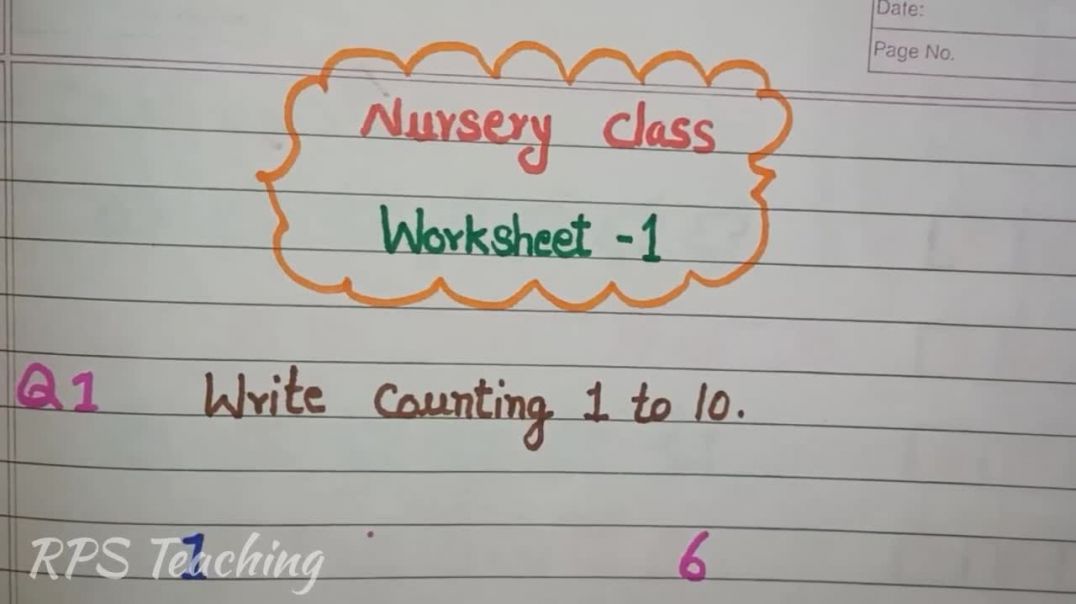 Date:
Page No.
Nursery class
Worksheet -1
Q1 Write Counting 1 to 10.
1 6
RPS Teaching